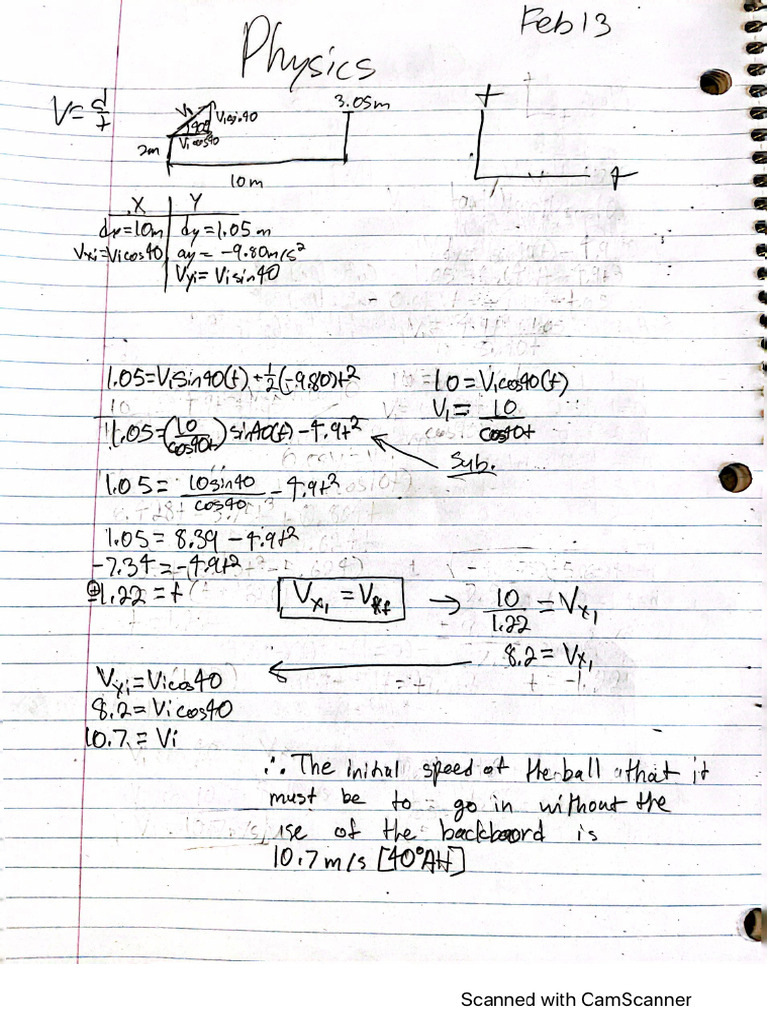 Feb 13
Physics
V = d/t
V₁
V₁sin40
40°
V₁cos40
3.05m
2m
10m
+
+
X | Y
dx=10m | dy=1.05 m
Vxi=Vicos40 | ay= -9.80m/s²
Vyi= Visin40
1.05=V₁Sin40(t)+½(-9.80)t²
10=V₁cos40(t)
V₁= 10/cos40t
1.05=(10/cos40t)sin40(t)-4.9t²
Sub.
1.05= 10sin40/cos40 - 4.9t²
1.05= 8.39 - 4.9t²
-7.34=-4.9t²
±1.22=t
Vx₁ = Vxf → 10/1.22 = Vx₁
8.2= Vx₁
Vxi=Vicos40
8.2=Vicos40
10.7= Vi
∴ The initial speed of the ball that it
must be to go in without the
use of the backboard is
10.7m/s [40°AH]
Scanned with CamScanner